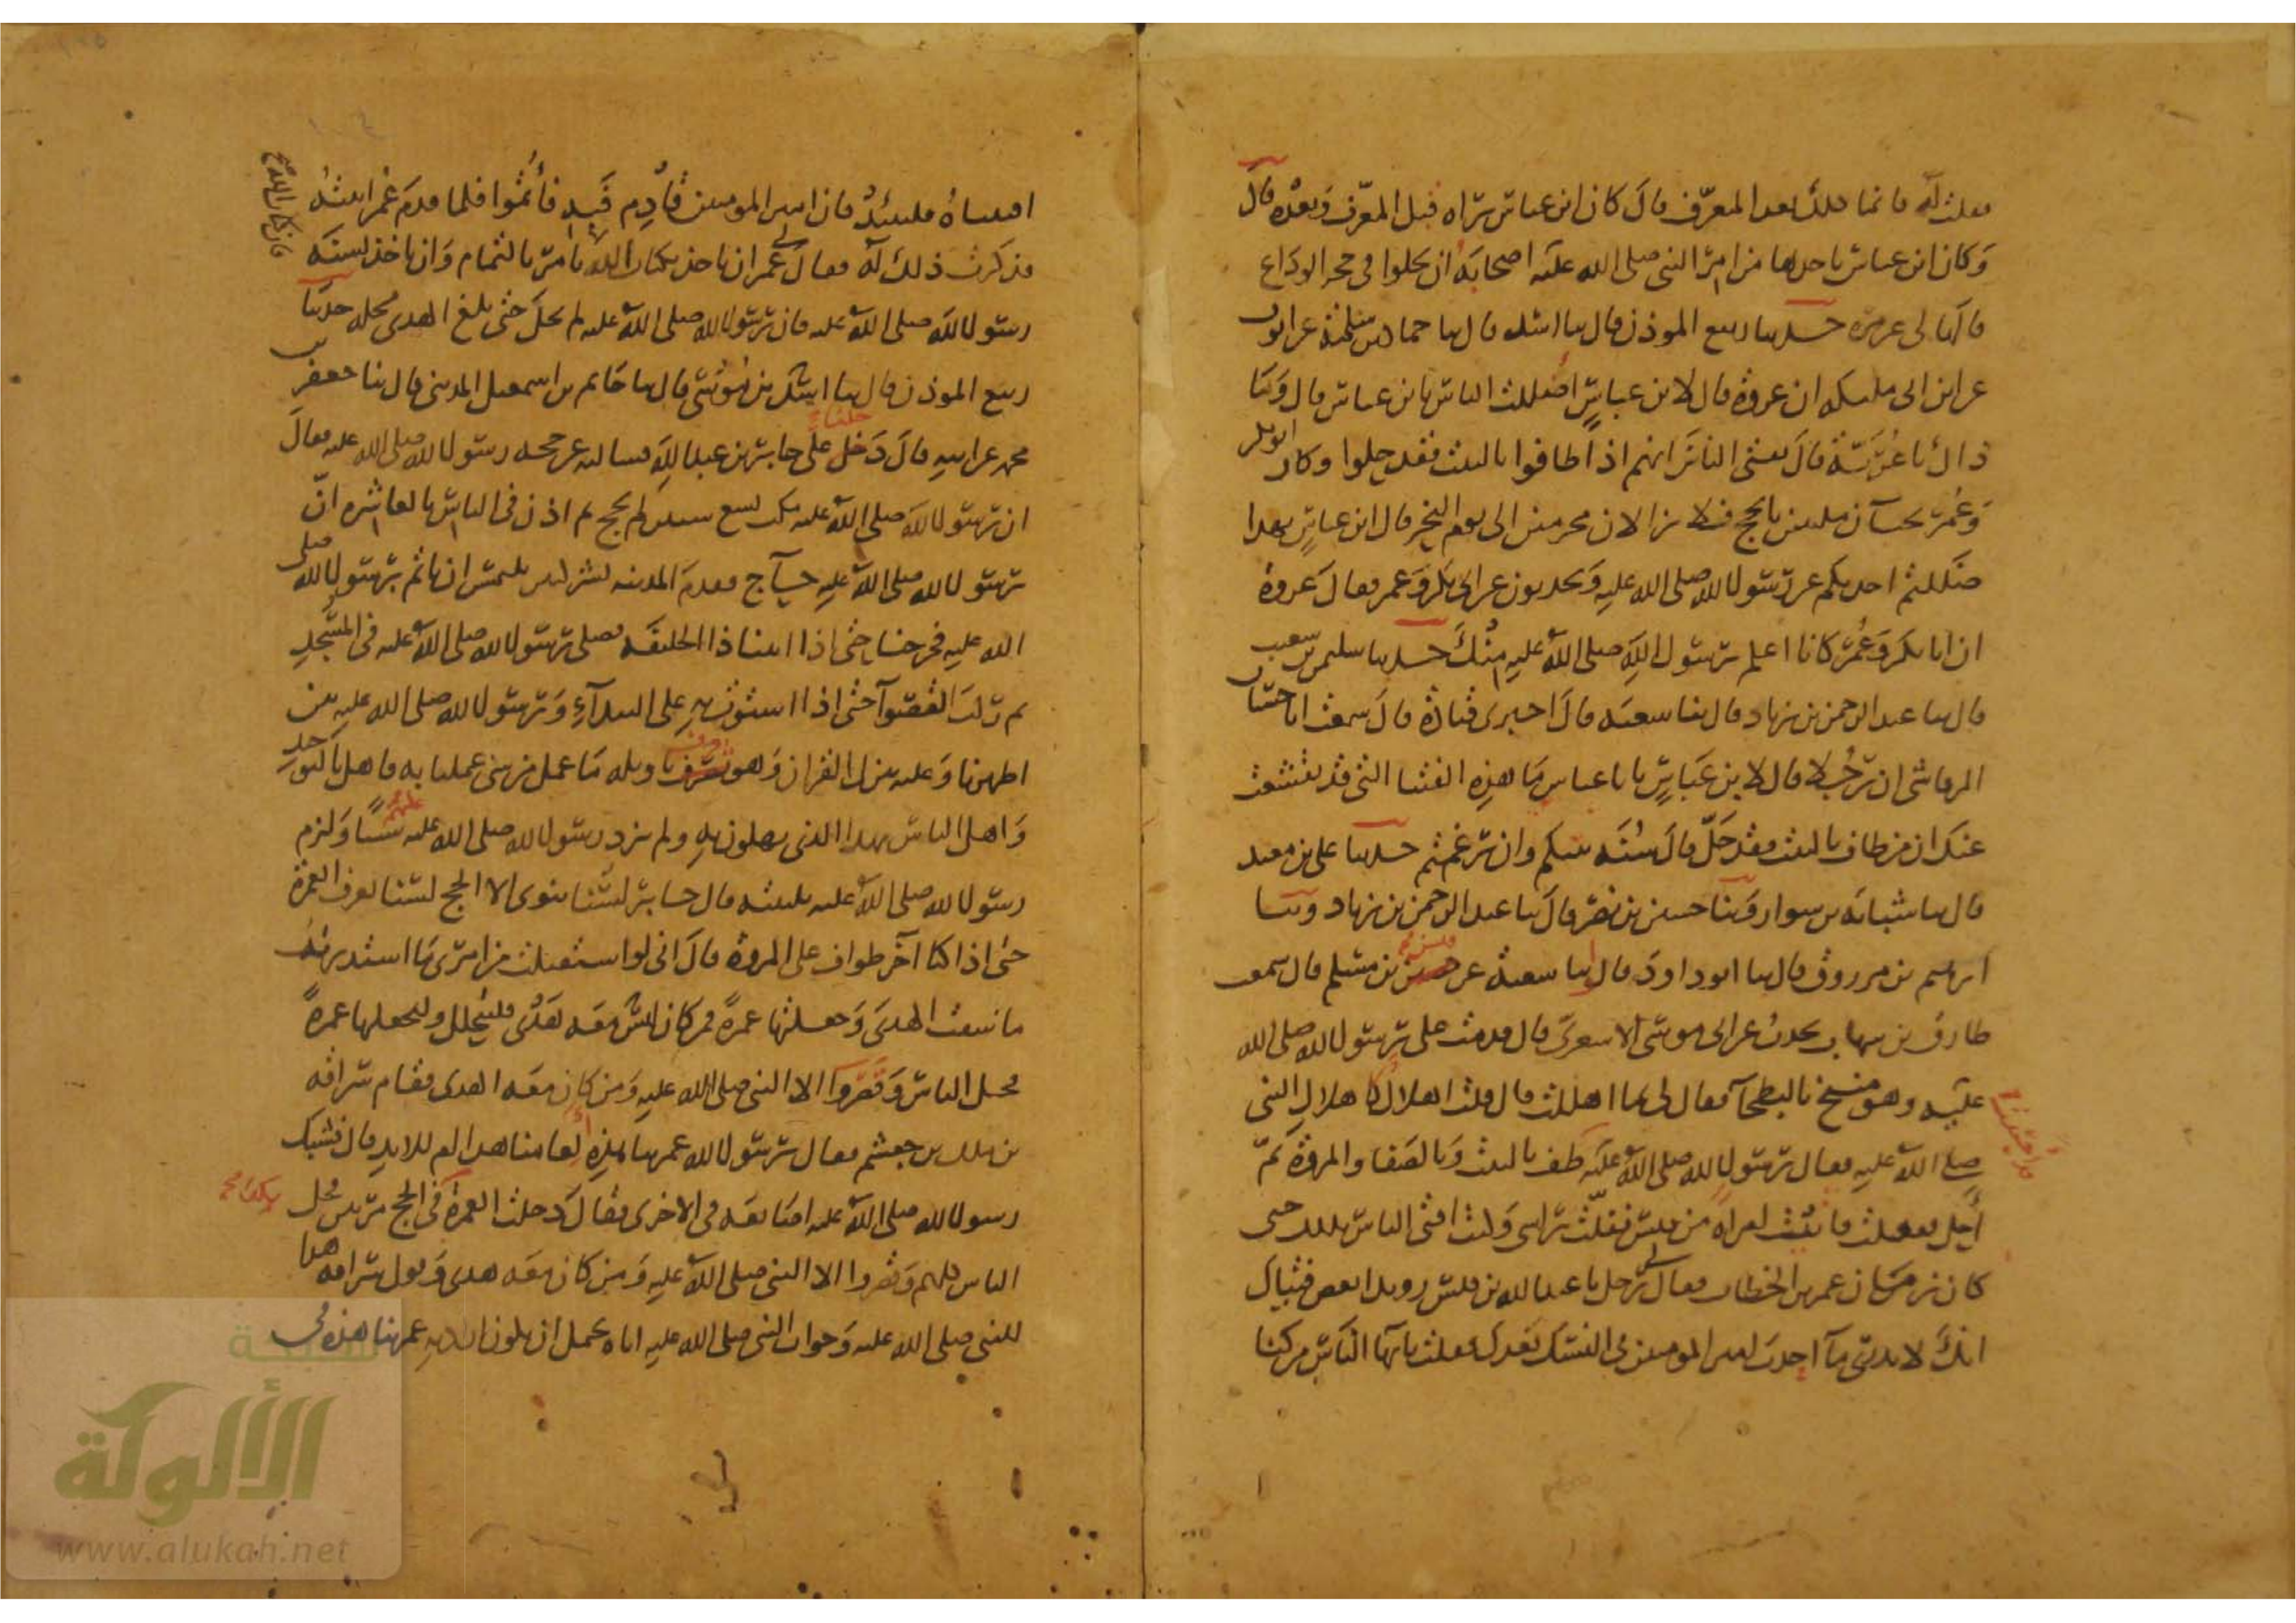 فقلت له فانما ذلك بعد المعرف قال كان ابن عباس يراه قبل المعرف وبعده قال
وكان ابن عباس ياخذها من امر النبي صلى الله عليه اصحابه ان يحلوا في حجة الوداع
قالها لي غير مرة حدثنا ربيع الموذن قال ثنا اسد قال ثنا حماد بن سلمة عن ايوب
عن ابن ابي مليكه ان عروة قال لابن عباس اضللت الناس يا بن عباس قال وما
ذاك يا عرية قال تفتي الناس انهم اذا طافوا بالبيت فقد حلوا وكان ابو بكر
وعمر يجيآن ملبين بالحج فلا يزالان محرمين الى يوم النحر قال ابن عباس بهذا
ضللتم احدثكم عن رسول الله صلى الله عليه وتحدثون عن ابي بكر وعمر فقال عروة
ان ابا بكر وعمر كانا اعلم برسول الله صلى الله عليه منك حدثنا سليمن بن شعيب
قال ثنا عبد الرحمن بن زياد قال ثنا شعبه قال اخبرني قتادة قال سمعت ابا حسان
الرقاشي ان رجلا قال لابن عباس يا با عباس ما هذه الفتيا التي قد تفشغت
عنك ان من طاف بالبيت فقد حل قال سنه نبيكم وان رغمتم حدثنا علي بن معبد
قال ثنا شبابه بن سوار وثنا حسين بن نصر قال ثنا عبد الرحمن بن زياد وثنا
ابرهيم بن مرزوق قال ثنا ابو داود قال ثنا شعبة عن قيس بن مسلم قال سمعت
طارق بن شهاب يحدث عن ابي موسى الاشعري قال قدمت على رسول الله صلى الله
عليه وهو منيخ بالبطحآ فقال لي بما اهللت قال قلت اهلال كاهلال النبي
صلى الله عليه فقال رسول الله صلى الله عليه طف بالبيت وبالصفا والمروة ثم
أحل ففعلت فاتيت امراة من قيس ففلت راسي وكنت افتي الناس بذلك حتى
كان زمان عمر بن الخطاب فقال لي رجل يا عبد الله بن قيس رويدا بعض فتياك
انك لا تدري ما احدث امير المومنين في النسك بعدك فقلت يا يها الناس من كنا
افتيناه فليتئد فان امير المومنين قادم فبه فأتموا فلما قدم عمر اتيته
فذكرت ذلك له فقال لي عمر ان ناخذ بكتاب الله يامر بالتمام وان ناخذ بسنه
رسول الله صلى الله عليه فان رسول الله صلى الله عليه لم يحل حتى بلغ الهدي محله حدثنا
ربيع الموذن قال ثنا اسد بن موسى قال ثنا حاتم بن اسمعيل المدني قال ثنا جعفر بن
محمد عن ابيه قال دخلنا على جابر بن عبد الله فسالته عن حجه رسول الله صلى الله عليه فقال
ان رسول الله صلى الله عليه مكث تسع سنين لم يحج ثم اذن في الناس بالعاشره ان
رسول الله صلى الله عليه حآج فقدم المدينه بشر كثير يلتمس ان ياتم برسول الله صلى
الله عليه فخرجنا حتى اذا اتينا ذا الحليفه فصلى رسول الله صلى الله عليه في المسجد
ثم ركب القصوآ حتى اذا استوت به على البيدآء ورسول الله صلى الله عليه بين
اظهرنا وعليه ينزل القران وهو يعرف تاويله ما عمل من شي عملنا به فاهل بالتوحيد
واهل الناس بهذا الذي يهلون به ولم يزد رسول الله صلى الله عليه عليهم شيًا ولزم
رسول الله صلى الله عليه تلبيته قال جابر لسنا ننوي الا الحج لسنا نعرف العمرة
حتى اذا كنا آخر طواف على المروة قال اني لو استقبلت من امري ما استدبرت
ما سقت الهدي وجعلتها عمرة فمن كان ليس معه هدي فليحلل وليجعلها عمرةً
فحل الناس وقصروا الا النبي صلى الله عليه ومن كان معه الهدي فقام سراقه
بن ملك بن جعشم فقال يرسول الله عمرتنا هذه أ لعامنا هذا ام للابد قال فشبك
رسول الله صلى الله عليه اصابعه في الاخرى فقال دخلت العمرة في الحج مرتين فحل
الناس كلهم وقصروا الا النبي صلى الله عليه ومن كان معه هدي وقول سراقه هذا
للنبي صلى الله عليه وجواب النبي صلى الله عليه اياه يحتمل ان يكون اراد به عمرتنا هذه في
شبكة
الألوكة
www.alukah.net